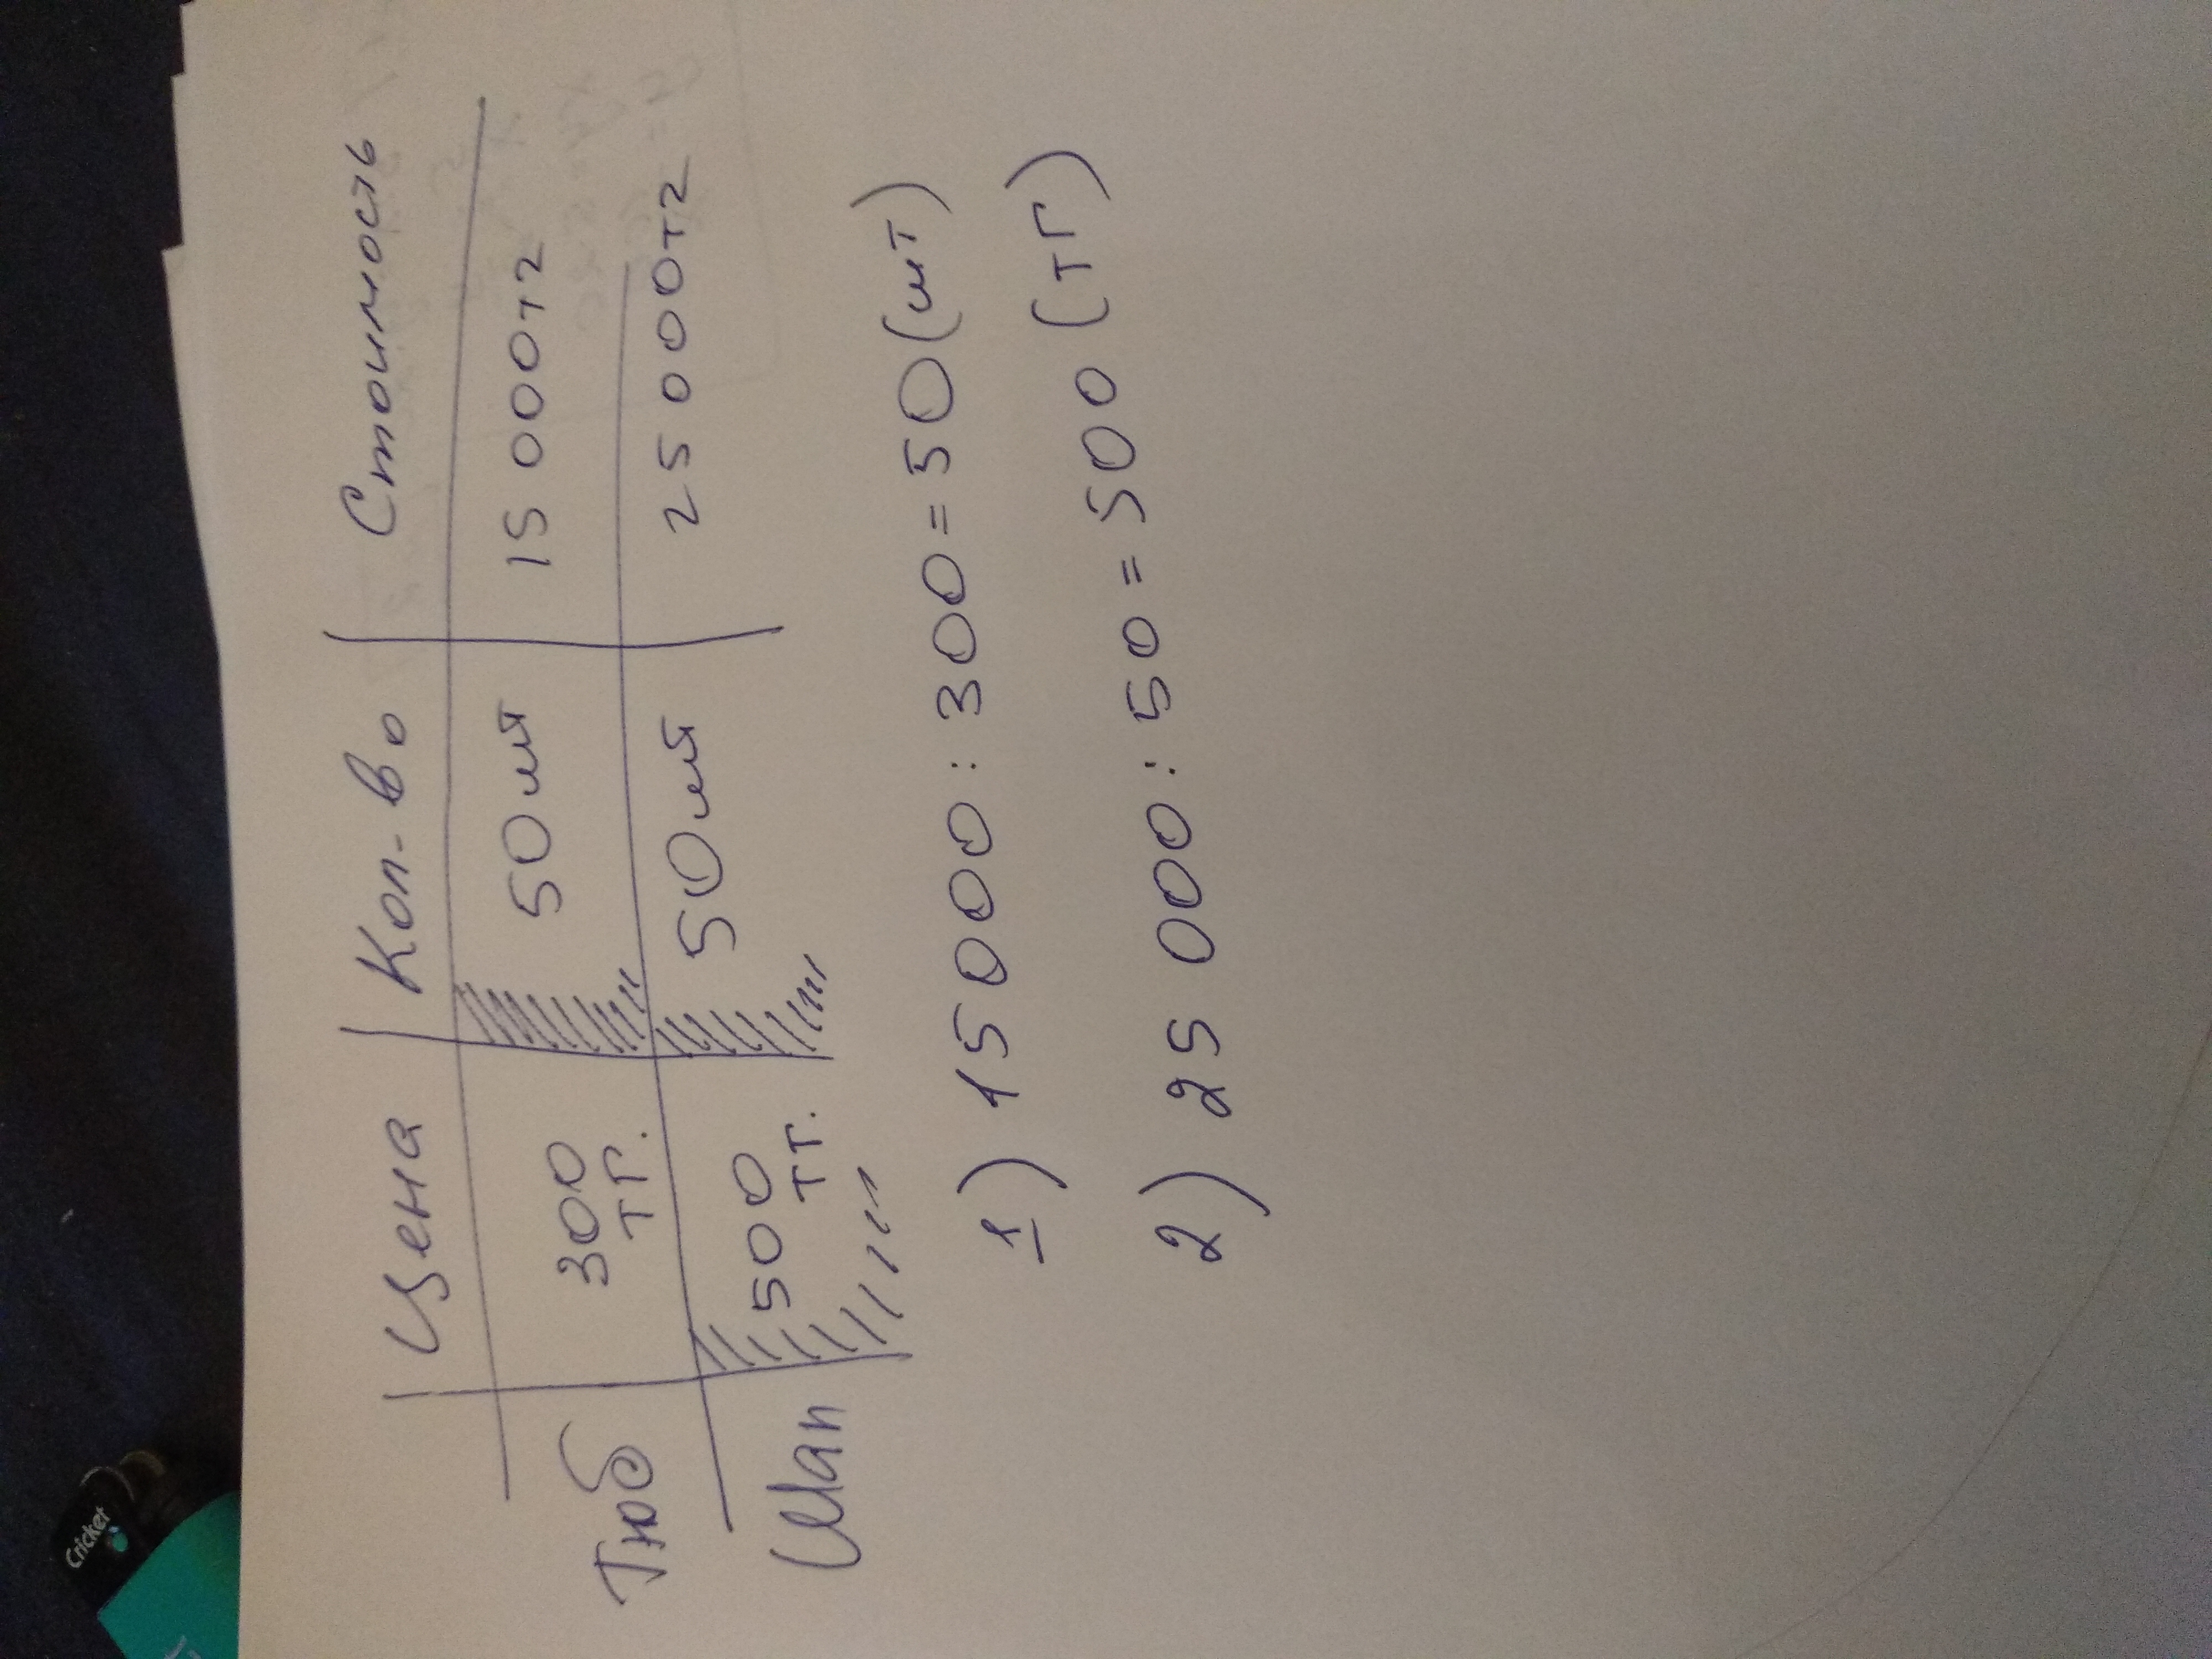 Цена Кол-во Стоимость
Тюб 300 тг. 50 шт 15 000тг
Шап 500 тг. 50 шт 25 000тг
1) 15 000 : 300 = 50 (шт)
2) 25 000 : 50 = 500 (тг)
Cricket